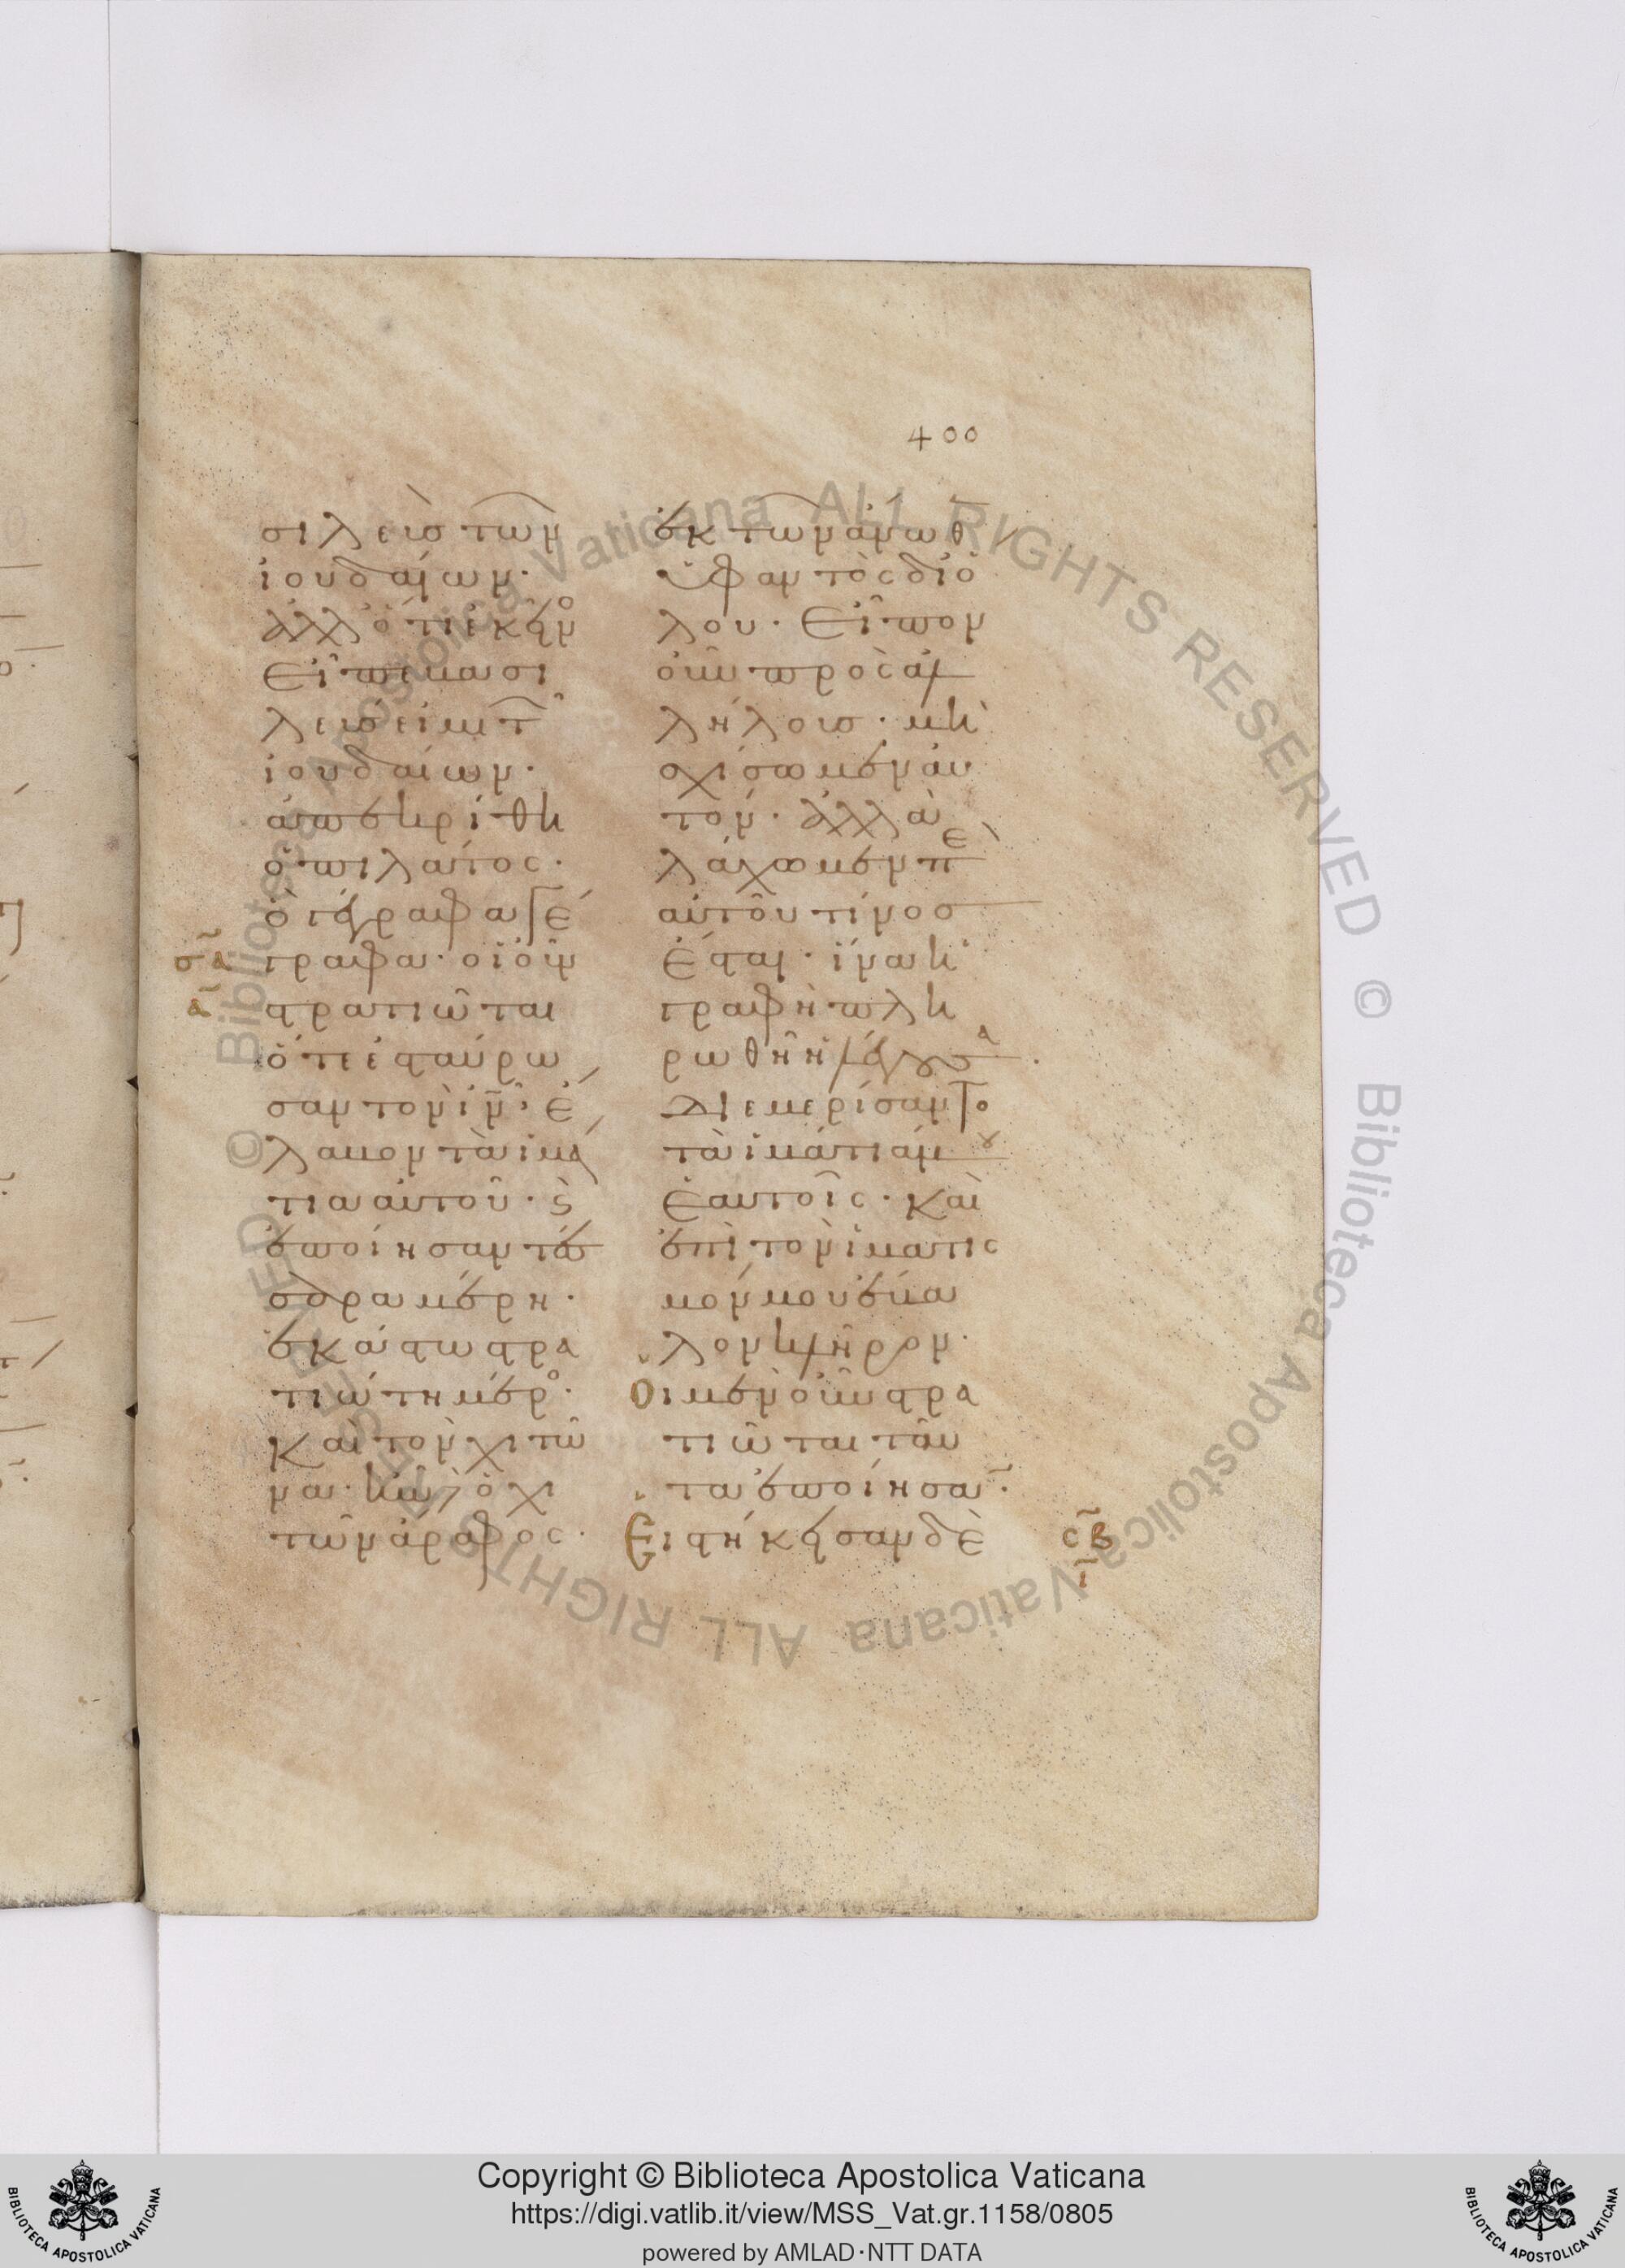 400
σιλεὺς τῶν
ἰουδαίων·
ἀλλ' ὅτι ἐκεῖν(ος)
εἶπε βασι
λεὺς εἰμι τῶ(ν)
ἰουδαίων·
ἀπεκρίθη
ὁ πιλάτος·
ὃ γέγραφα γέ
γραφα· οἱ οὖν
στρατιῶται
ὅτε ἐσταύρω
σαν τὸν ἰν̅· ἔ
λαβον τὰ ἱμά
τια αὐτοῦ· καὶ
ἐποίησαν τέσ
σαρα μέρη·
ἑκάστω στρα
τιώτη μέρο(ς)·
καὶ τὸν χιτῶ
να· ἦν δὲ ὁ χι
τὼν ἄραφος·
ἐκ τῶν ἄνωθ(εν)
ὑφαντὸς δι' ὅ
λου· εἶπον
οὖν πρὸς ἀλ
λήλους· μὴ
σχίσωμεν αὐ
τόν· ἀλλὰ
λάχωμεν πε(ρὶ)
αὐτοῦ τίνος
ἔσται· ἵνα ἡ
γραφὴ πλη
ρωθῆ ἡ λέγουσα·
διεμερίσαντο
τὰ ἱμάτιά μου
ἑαυτοῖς· καὶ
ἐπὶ τὸν ἱματισ
μόν μου ἔβα
λον κλῆρον·
Οἱ μὲν οὖν στρα
τιῶται ταῦ
τα ἐποίησα(ν)·
Εἱστήκεισαν δὲ
σα
α
σβ
ι
Copyright © Biblioteca Apostolica Vaticana
https://digi.vatlib.it/view/MSS_Vat.gr.1158/0805
powered by AMLAD·NTT DATA
BIBLIOTECA APOSTOLICA VATICANA
BIBLIOTECA APOSTOLICA VATICANA
© Biblioteca Apostolica Vaticana ALL RIGHTS RESERVED © Biblioteca Apostolica Vaticana ALL RIGHTS RESERVED